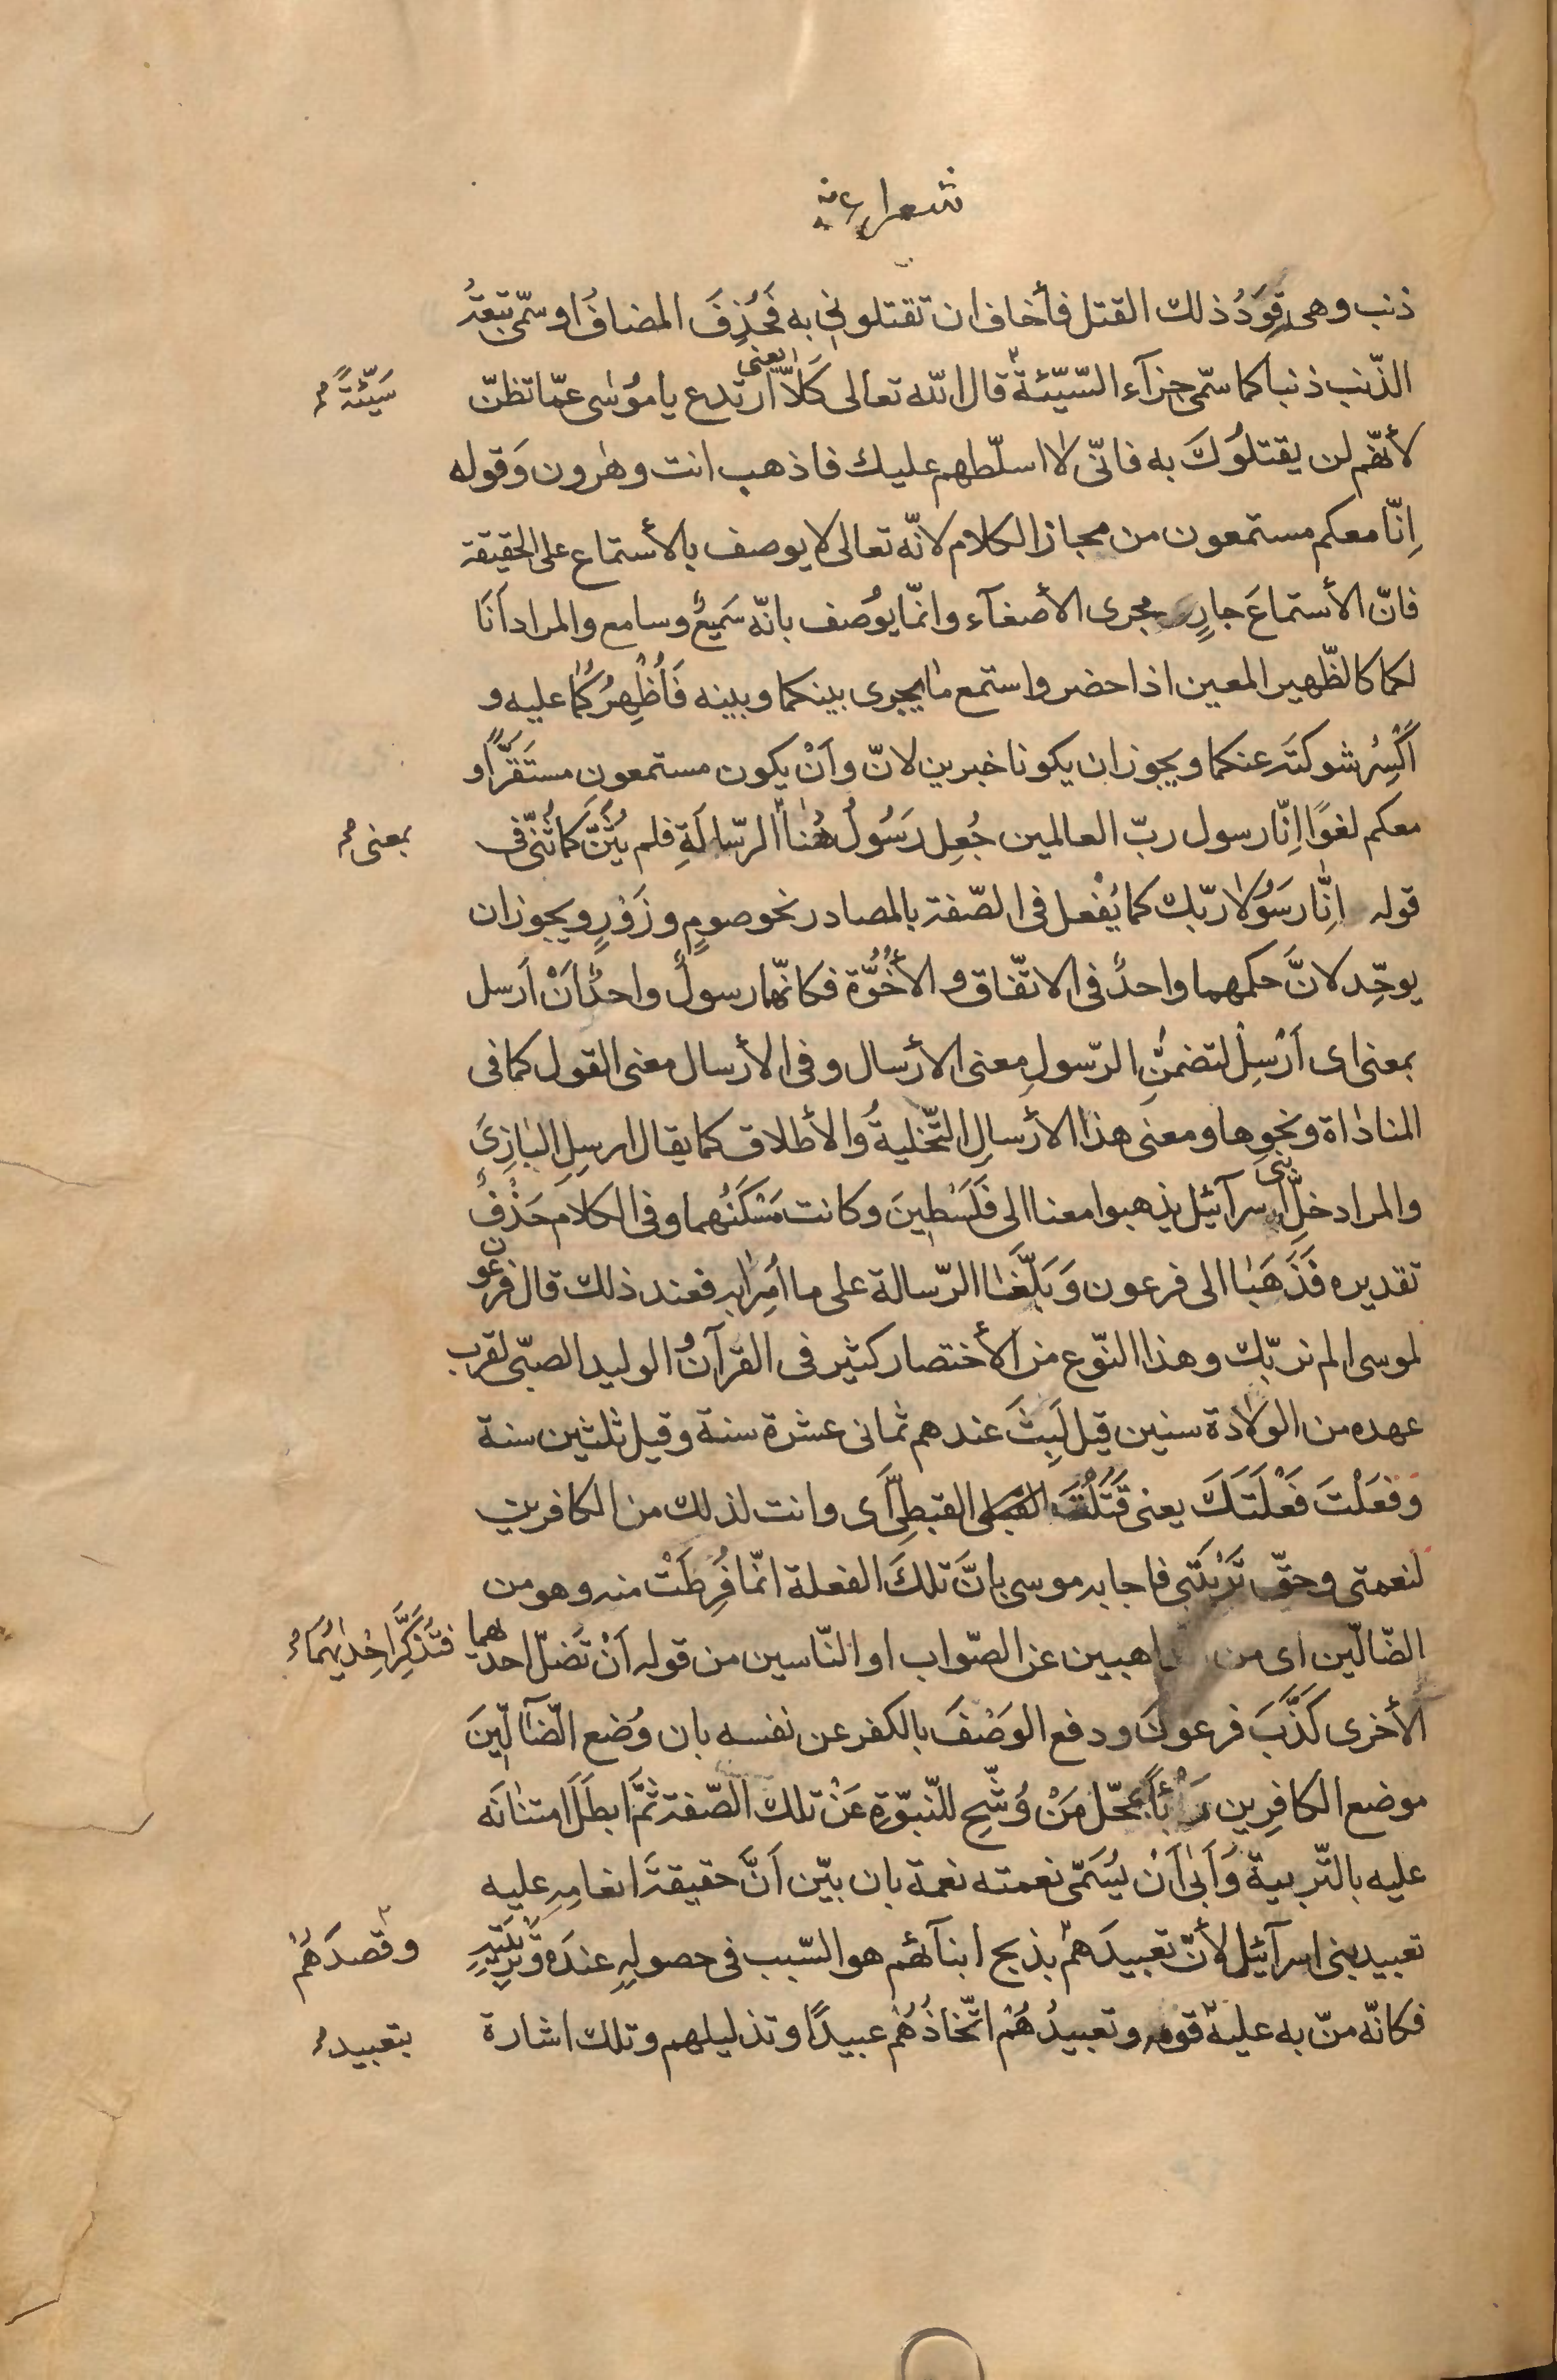 شعراء
ذنب وهى قِوَدُ ذلك القتل فأخاف ان تقتلونى به فَحُذِفَ المضافُ او سمّى تبعةُ
الذّنب ذنبا كما سمّى جزآء السّيّئة قال اللّه تعالى كَلاّ يعنى ارتدع يا مُوسٰى عمّا تظنّ
سَيّئَةً
لأنّهم لن يقتلُوكَ به فانّى لا اسلّطهم عليك فاذهب انت وهٰرون وَقوله
اِنّا معكم مستمعون من مجاز الكلام لانّه تعالى لا يوصف بالأستماع على الحقيقة
فانّ الأستماعَ جارٍ مجرى الأصغآء وانمّا يوُصف بانّه سَميعٌ وسامع والمراد اَنَا
لكما كالظّهير المعين اذا حضر واستمع ما يجرى بينكما وبينه فَأُظْهِرُكُما عليه و
اَكْسِرُ شوكتَه عنكما ويجوز ان يكونا خبرين لانّ واَنْ يكون مستمعون مستَقَرًّا و
معكم لغوًا اِنّا رسول ربّ العالمين جُعِل رَسُولُ هُنا الرّسالَةِ فلم يُثَنَّ كما ثُنّى فى
بمعنى
قوله اِنّا رسَوُلا ربّك كما يُفْعل فى الصّفة بالمصادر نحو صومٍ وزَوْرٍ ويجوز ان
يوحّد لانَّ حكمهما واحدٌ فى الاتّفاق و الأُخُوَّة فكانّهما رسولٌ واحدٌ اَنْ اَرسل
بمعنى اى اَرْسِلْ لتضمّنِ الرّسولِ معنى الأرسال وفى الأرسال معنى القول كما فى
المناداة ونحوِها ومعنى هذا الأرسالِ التّخليةُ والأطلاق كما يقال ارسِلِ البازِىَ
والمراد خلِّ بنى اسرآئيل يذهبوا معنا الى فَلَسْطِينَ وكانت مَسْكَنُهما وفى الكلام حَذْفٌ
تقديره فَذَهَبٰا الى فرعون وَبَلَّغَا الرّسالة على ما اُمِرٰا به فعند ذلك قال فرعون
لموسى الم نربّك وهذا النّوع من الأختصار كثير فى القرآن والوليد الصبّى لقرب
عهده من الولادة سنين قيل لَبِثَ عندهم ثمانى عشرة سنة وقيل ثلثين سنة
وفعَلْتَ فَعْلَتَكَ يعنى قَتَلْتَ القبطِىَّ اى وانت لذلك من الكافرين
لنعمتى وحقّ تَرْبيَتى فاجابه موسى بانَّ تلكَ الفعلة انمّا فُرِطَتْ منه وهو من
الضّالّين اى من الذاهبين عن الصّواب او النّاسين من قوله اَنْ تَضلّ احديهما
فَتُذَكِّرَ اِحْدٰيهُمَا
الأخرى كَذَّبَ فرعونَ ودفع الوَصْفَ بالكفر عن نفسه بان وُضع الضّآلّينَ
موضع الكافرِين رَبْأً بمحّل مَنْ وُشّحِ للنّبوّة عَنْ تلك الصّفة ثمَّ ابطَلَ امتنٰانَه
عليه بالتّربية وَاَبىٰ اَنْ يُسَمّى نعمته نعمة بان بيّن اَنَّ حقيقةَ انعامِهِ عليه
تعبيد بنى اسرآئيل لأنّ تعبيدَهُمْ بذبح ابنآئهم هو السّبب فى حصولِهِ عندَه وَتَرْبيَتِهِ
وقصدَهُمْ
فكانّه منّ به عليه قومه وتعبيدُهُمْ اتّخاذُهُمْ عبيدًا وتذليلهم وتلك اشارة
بتعبيد